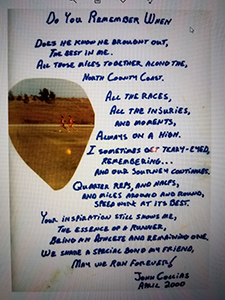 Do You Remember When
Does he know he brought out,
The best in me.
All those miles together along the,
North County Coast.
All the races,
All the injuries,
and moments,
Always on a high.
I sometimes get teary-eyed,
Remembering...
And our journey continues.
Quarter reps, and halfs,
and miles around and round,
Speed work at its best.
Your inspiration still shows me,
The essence of a runner,
Being an athlete and remaining one.
We share a special bond my friend,
May we run forever!
John Collias
April 2000